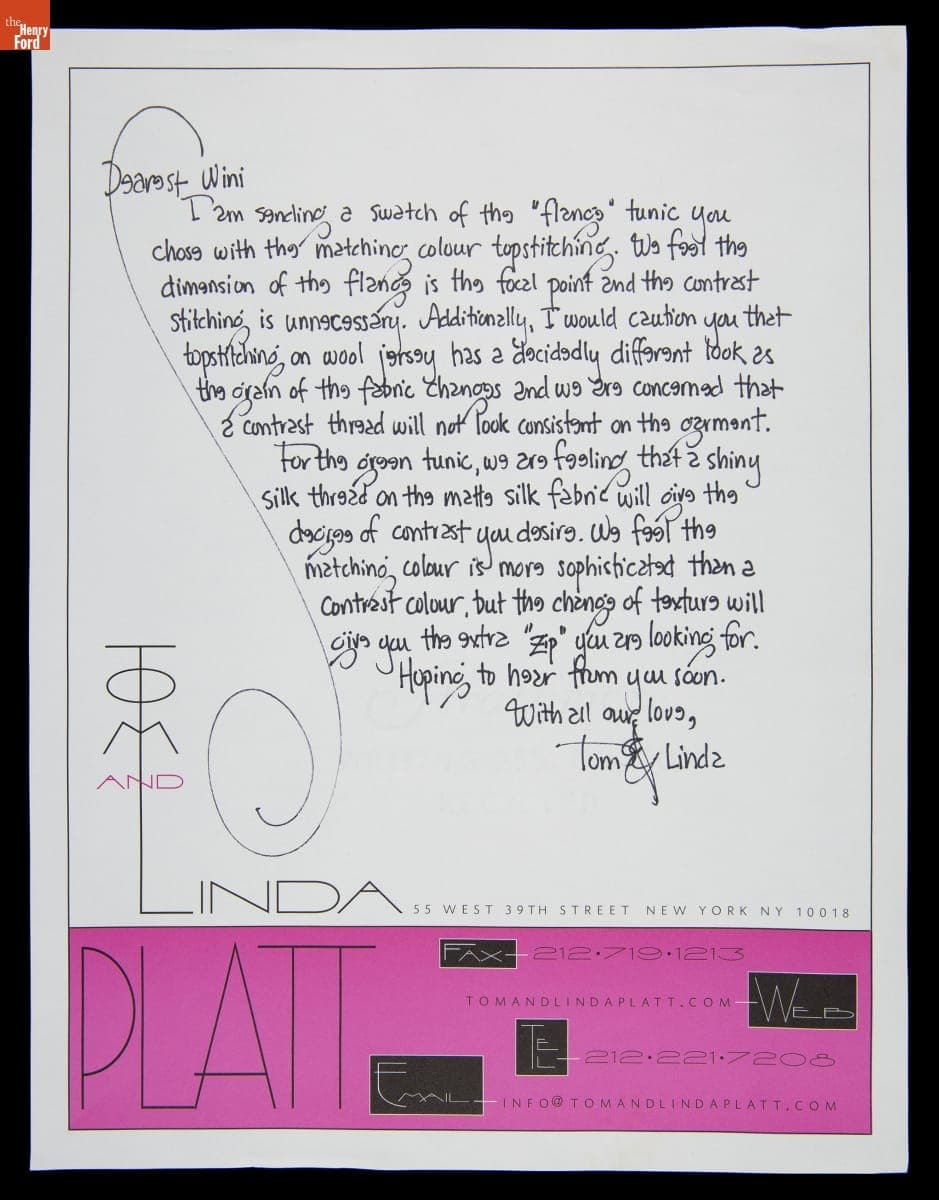 the
Henry
Ford
Dearest Wini
I am sending a swatch of the "flange" tunic you
chose with the matching colour topstitching. We feel the
dimension of the flange is the focal point and the contrast
stitching is unnecessary. Additionally, I would caution you that
topstitching on wool jersey has a decidedly different look as
the grain of the fabric changes and we are concerned that
a contrast thread will not look consistent on the garment.
For the green tunic, we are feeling that a shiny
silk thread on the matte silk fabric will give the
degree of contrast you desire. We feel the
matching colour is more sophisticated than a
contrast colour, but the change of texture will
give you the extra "zip" you are looking for.
Hoping to hear from you soon.
With all our love,
Tom & Linda
TOM
AND
LINDA
55 WEST 39TH STREET NEW YORK NY 10018
PLATT
FAX 212·719·1213
TOMANDLINDAPLATT.COM WEB
TEL 212·221·7208
EMAIL INFO@TOMANDLINDAPLATT.COM